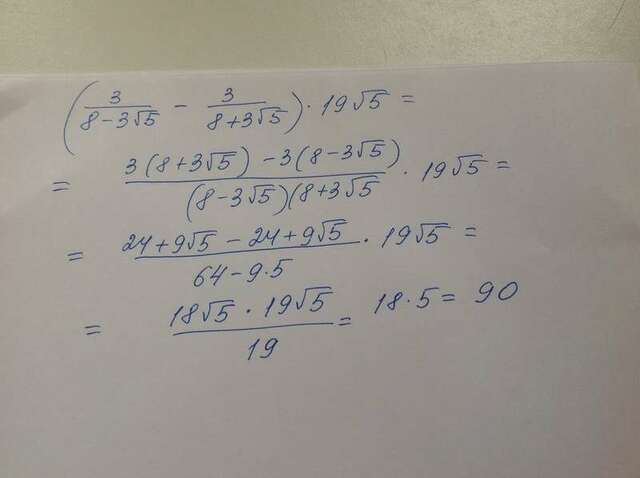 (3/(8-3√5) - 3/(8+3√5)) · 19√5 =
= (3(8+3√5) - 3(8-3√5))/((8-3√5)(8+3√5) · 19√5 =
= (24+9√5 - 24+9√5)/(64-9·5) · 19√5 =
= (18√5 · 19√5)/19 = 18·5 = 90